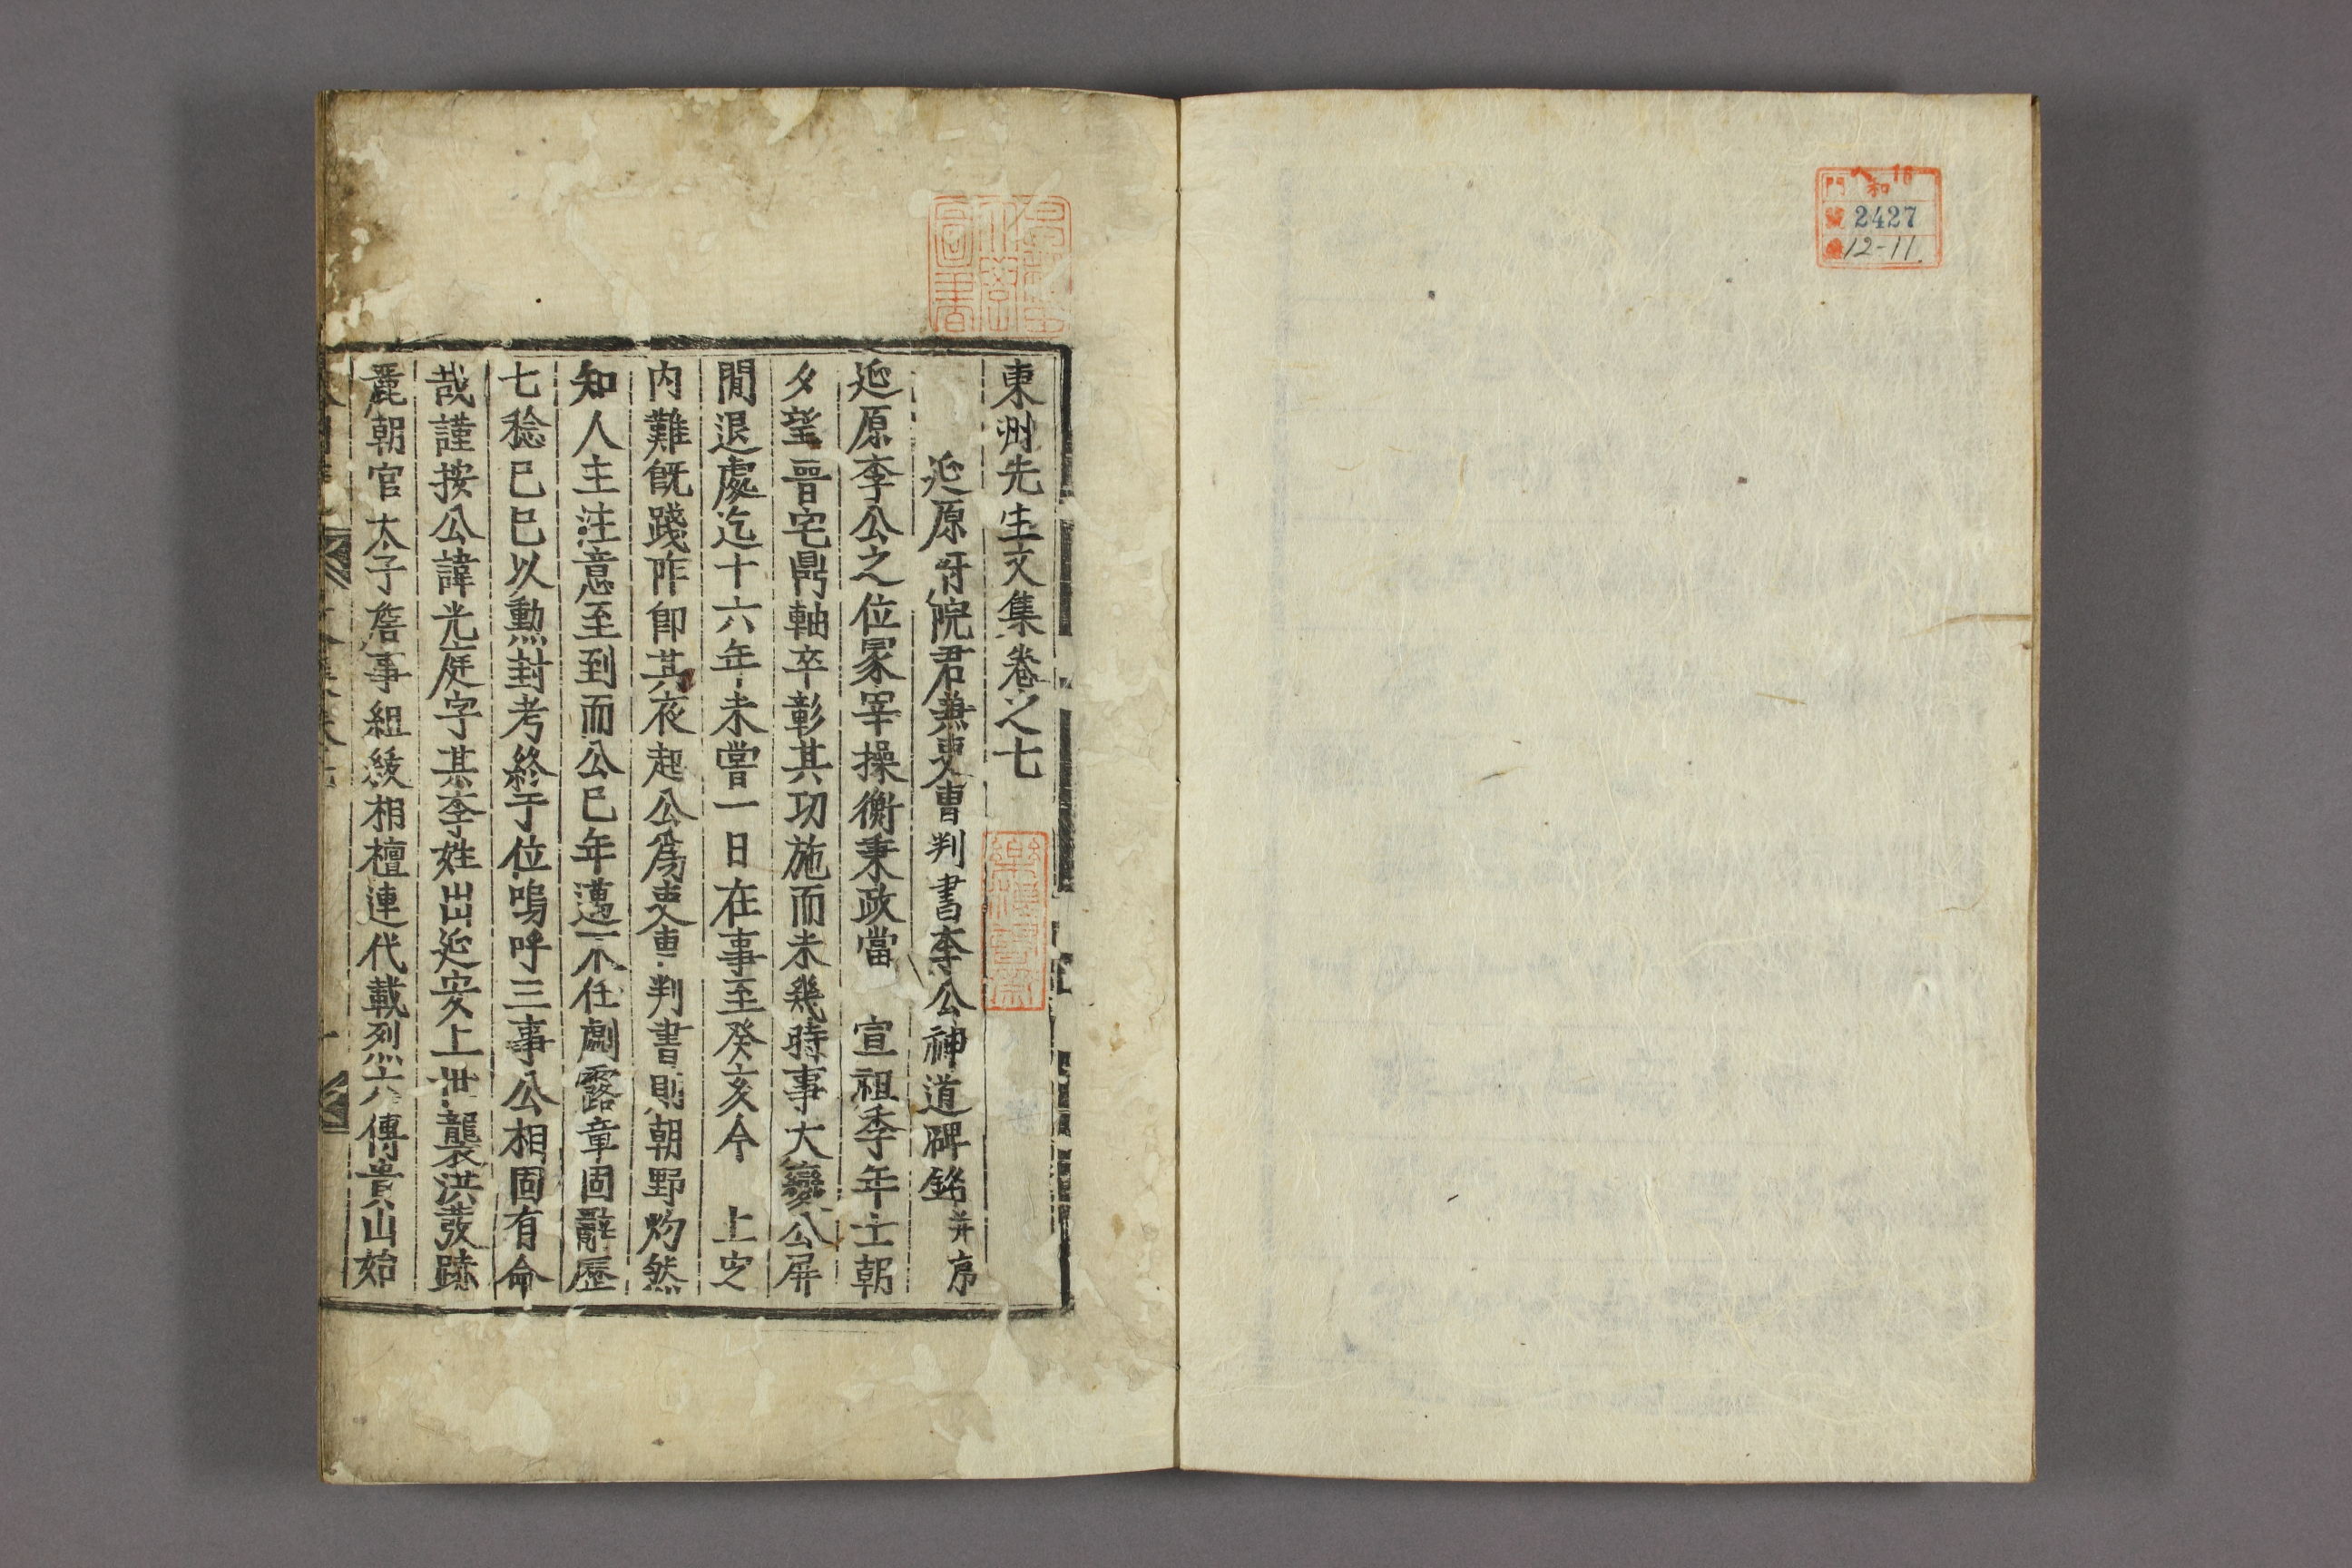 門 和 18
2427
12-11.
東州先生文集卷之七
延原府院君兼吏曹判書李公神道碑銘并序
延原李公之位冢宰操衡秉政當 宣祖季年士朝
夕望晉宅鼎軸卒彰其功施而未幾時事大變公屏
閒退處迄十六年未嘗一日在事至癸亥今 上㝎
內難旣踐阼卽其夜起公爲吏曹判書則朝野灼然
知人主注意至到而公已年邁不任劇露章固辭歷
七稔己巳以勳封考終于位嗚呼三事公相固有命
哉謹按公諱光庭字某李姓出延安上世襲洪發跡
麗朝官太子詹事組綬相襢連代載烈六傳貴山始